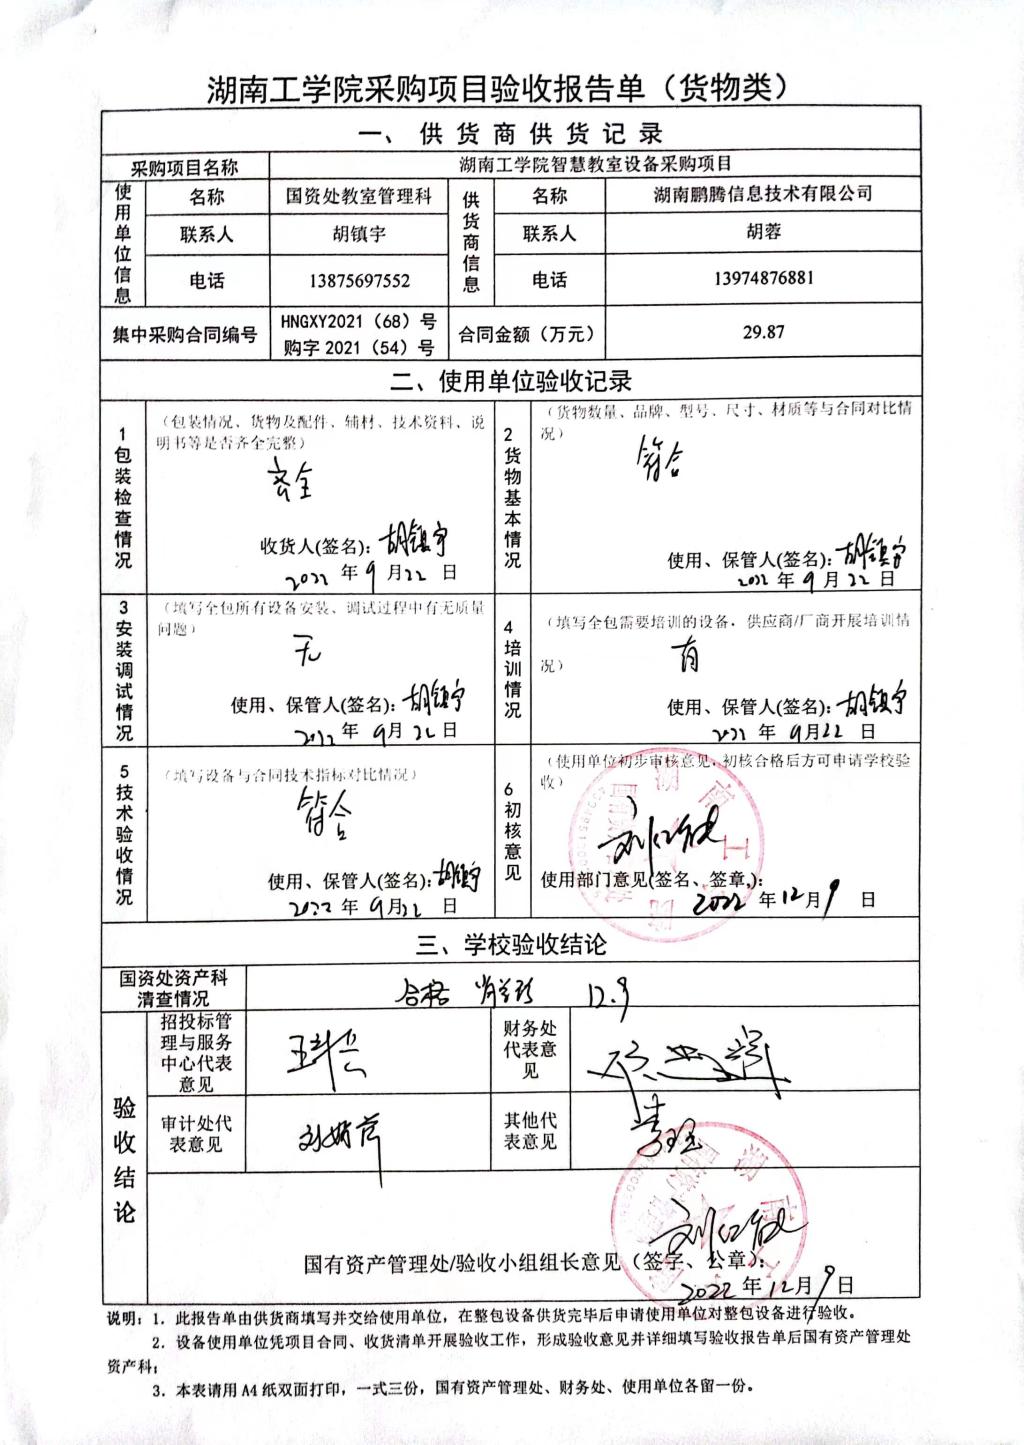 湖南工学院采购项目验收报告单（货物类）
一、供货商供货记录
采购项目名称 湖南工学院智慧教室设备采购项目
使用单位信息 名称 国资处教室管理科 供货商信息 名称 湖南鹏腾信息技术有限公司
联系人 胡镇宇 联系人 胡蓉
电话 13875697552 电话 13974876881
集中采购合同编号 HNGXY2021（68）号 合同金额（万元） 29.87
购字2021（54）号
二、使用单位验收记录
1包装检查情况
（包装情况、货物及配件、辅材、技术资料、说
明书等是否齐全完整）
齐全
收货人(签名)：胡镇宇
2022 年 9 月 22 日
2货物基本情况
（货物数量、品牌、型号、尺寸、材质等与合同对比情
况）
符合
使用、保管人(签名)：胡镇宇
2022 年 9 月 22 日
3安装调试情况
（填写全包所有设备安装、调试过程中有无质量
问题）
无
使用、保管人(签名)：胡镇宇
2022 年 9月 22 日
4培训情况
（填写全包需要培训的设备，供应商/厂商开展培训情
况）
有
使用、保管人(签名)：胡镇宇
2022 年 9月22 日
5技术验收情况
（填写设备与合同技术指标对比情况）
符合
使用、保管人(签名)：胡镇宇
2022 年 9月22 日
6初核意见
（使用单位初步审核意见，初核合格后方可申请学校验
收）
使用部门意见(签名、签章)：
2022 年12月9 日
三、学校验收结论
国资处资产科
清查情况
合格 12.9
验收结论
招投标管
理与服务
中心代表
意见
财务处
代表意
见
审计处代
表意见
其他代
表意见
国有资产管理处/验收小组组长意见（签字、公章）：
2022年12月9日
说明：1．此报告单由供货商填写并交给使用单位，在整包设备供货完毕后申请使用单位对整包设备进行验收。
2．设备使用单位凭项目合同、收货清单开展验收工作，形成验收意见并详细填写验收报告单后国有资产管理处
资产科；
3．本表请用A4纸双面打印，一式三份，国有资产管理处、财务处、使用单位各留一份。